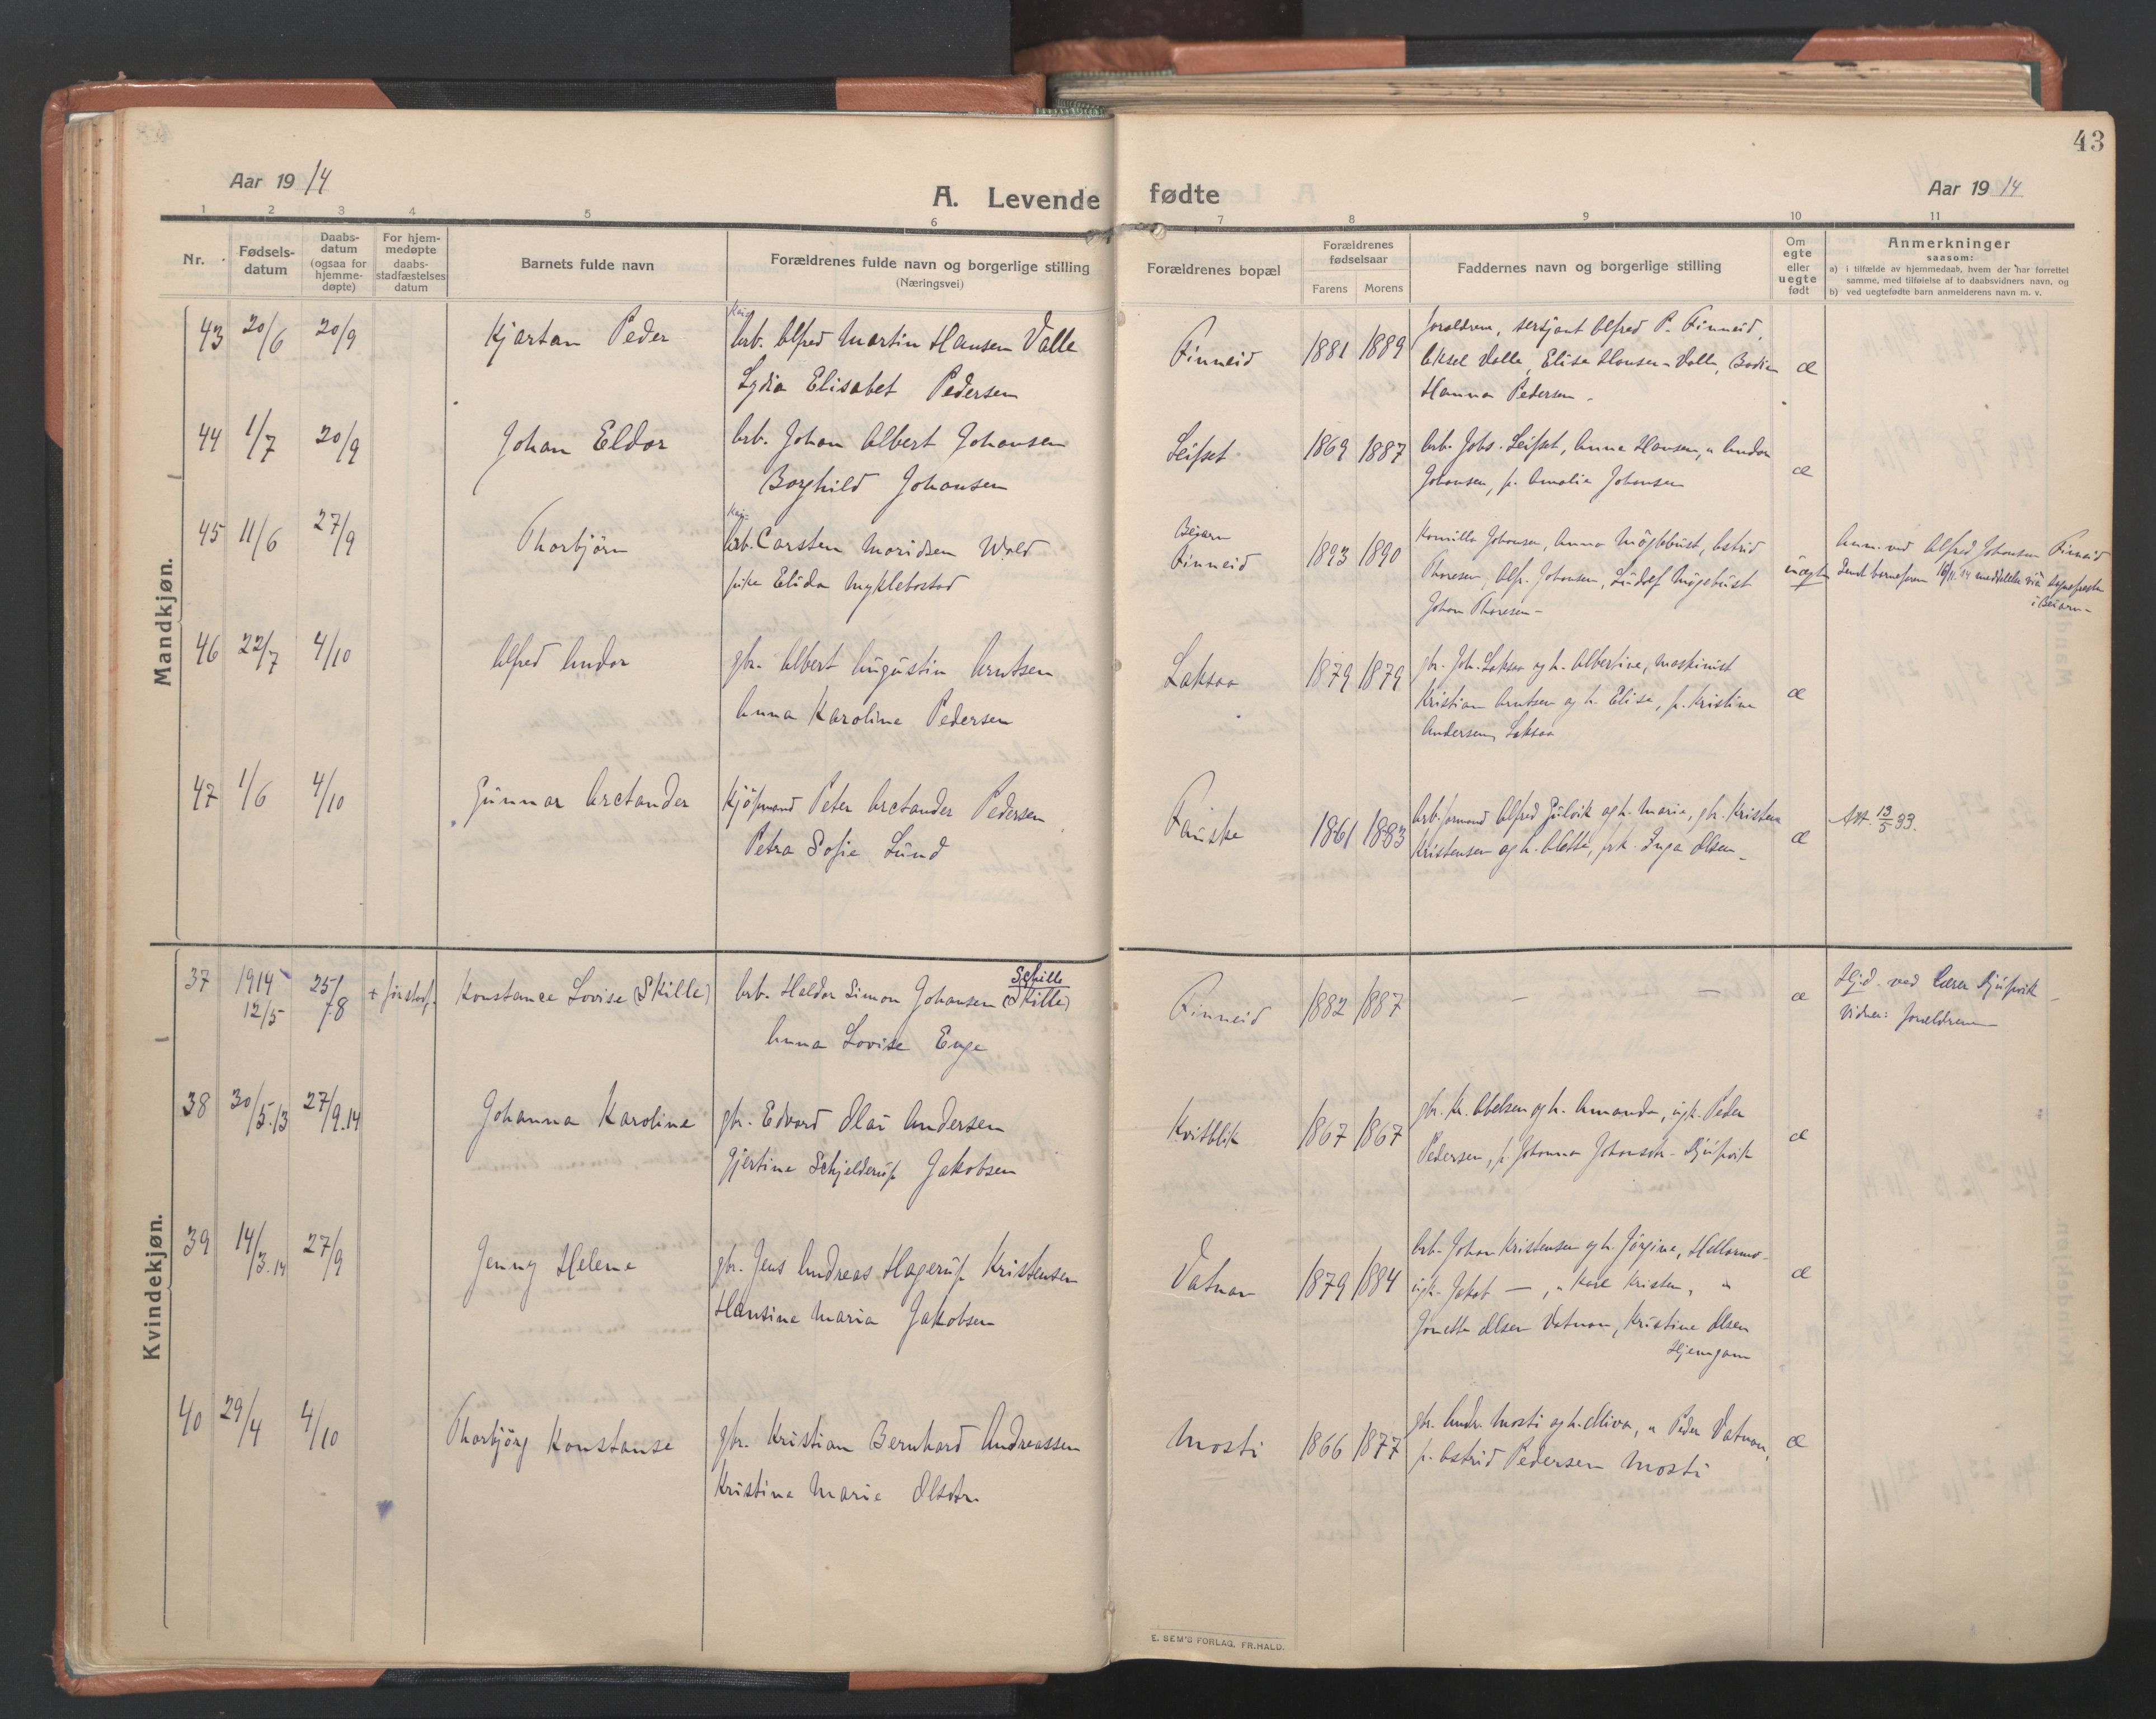 43
Aar 19 14
A. Levende fødte
Aar 19 14
1 2 3 4 5 6 7 8 9 10 11
Nr.
Fødsels-
datum
Daabs-
datum
(ogsaa for
hjemme-
døpte)
For hjem-
medøpte
daabs-
stadfæstelses
datum
Barnets fulde navn
Forældrenes fulde navn og borgerlige stilling
(Næringsvei)
Forældrenes bopæl
Forældrenes
fødselsaar
Farens Morens
Faddernes navn og borgerlige stilling
Om
egte
eller
uegte
født
Anmerkninger
saasom:
a) i tilfælde av hjemmedaab, hvem der har forrettet
samme, med tilføielse af to daabsvidners navn, og
b) ved uegtefødte barn anmelderens navn m. v.
Mandkjøn.
43 20/6 20/9 Kjartan Peder
arb. Alfred Martin Hansen Valle
Lydia Elisabet Pedersen
Finneid 1881 1889
forældrene, sersjant Alfred P. Finneid,
Aksel Valle, Elise Hansen-Valle, Bodin
Hanna Pedersen -
æ
44 1/7 20/9 Johan Eldor
arb. Johan Albert Johansen
Borghild Johansen
Leifset 1869 1887
arb. Johs. Leifset, Anna Hansen, " Andor
Johansen, p. Amalie Johansen
æ
45 11/6 27/9 Thorbjörn
arb. Carsten Moridsen Wold
pike Elida Myklebostad
Beiarn
Finneid 1893 1890
Johansen, Anna Myglebust, Astrid
Thoresen, Alf. Johansen, Ludolf
Johan Thoresen -
uægte
Anm. ved Alfred Johansen Finneid
i Beiarn -
46 22/7 4/10 Alfred Andor
gbr. Albert Augustin Arntsen
Anna Karoline Pedersen
Laksaa 1879 1879
gbr. Joh. Laksaa og h. Albertine, maskinist
Kristian Arntsen og h. Elise, p. Kristine
Andersen, Laksaa
æ
47 1/6 4/10 Gunnar Arctander
Kjöpmand Peter Arctander Pedersen
Petra Sofie Lund
Fauske 1861 1883
arb.formand Alfred Gulvik og h. Marie, gbr. Kristen
Kristensen og h. Aletta, frk. Inga Olsen -
æ
Att. 13/5 33.
Kvindekjøn.
37 1914 12/5 25/7.8 Konstance Lovise (Skille)
arb. Haldor Simon Johansen (Skille)
Schille
Anna Lovise Enge
Finneid 1882 1887
- -
æ
Hjd. ved lærer Djupvik -
Vidner: forældrene
38 30/5.13 27/9.14 Johanna Karoline
gbr. Edvard Olai Andersen
Gjertine Schjelderup Jakobsen
Kvitblik 1867 1867
gbr. Kr. Abelsen og h. Amanda, ugk. Peder
Pedersen, p. Johanna Johansdr. - Djupvik
æ
39 14/3.14 27/9 Jenny Helene
gbr. Jens Andreas Hagerup Kristensen
Hansine Maria Jakobsen
Vatnan 1879 1884
arb. Johan Kristensen og h. Jörgine,
ugk. Jakob -, " Karl Kristen, "
Jonetta Olsen Vatnan, Kristine Olsen
Hjemgam
æ
40 29/4 4/10 Thorbjörg Konstanse
gbr. Kristian Bernhard Andreassen
Kristine Marie Olsdtr.
Mosti 1866 1877
gbr. Andr. Mosti og h. Oliva, " Peder Vatnan,
p. Astrid Pedersen Mosti
æ
E. SEM'S FORLAG, FR.HALD.